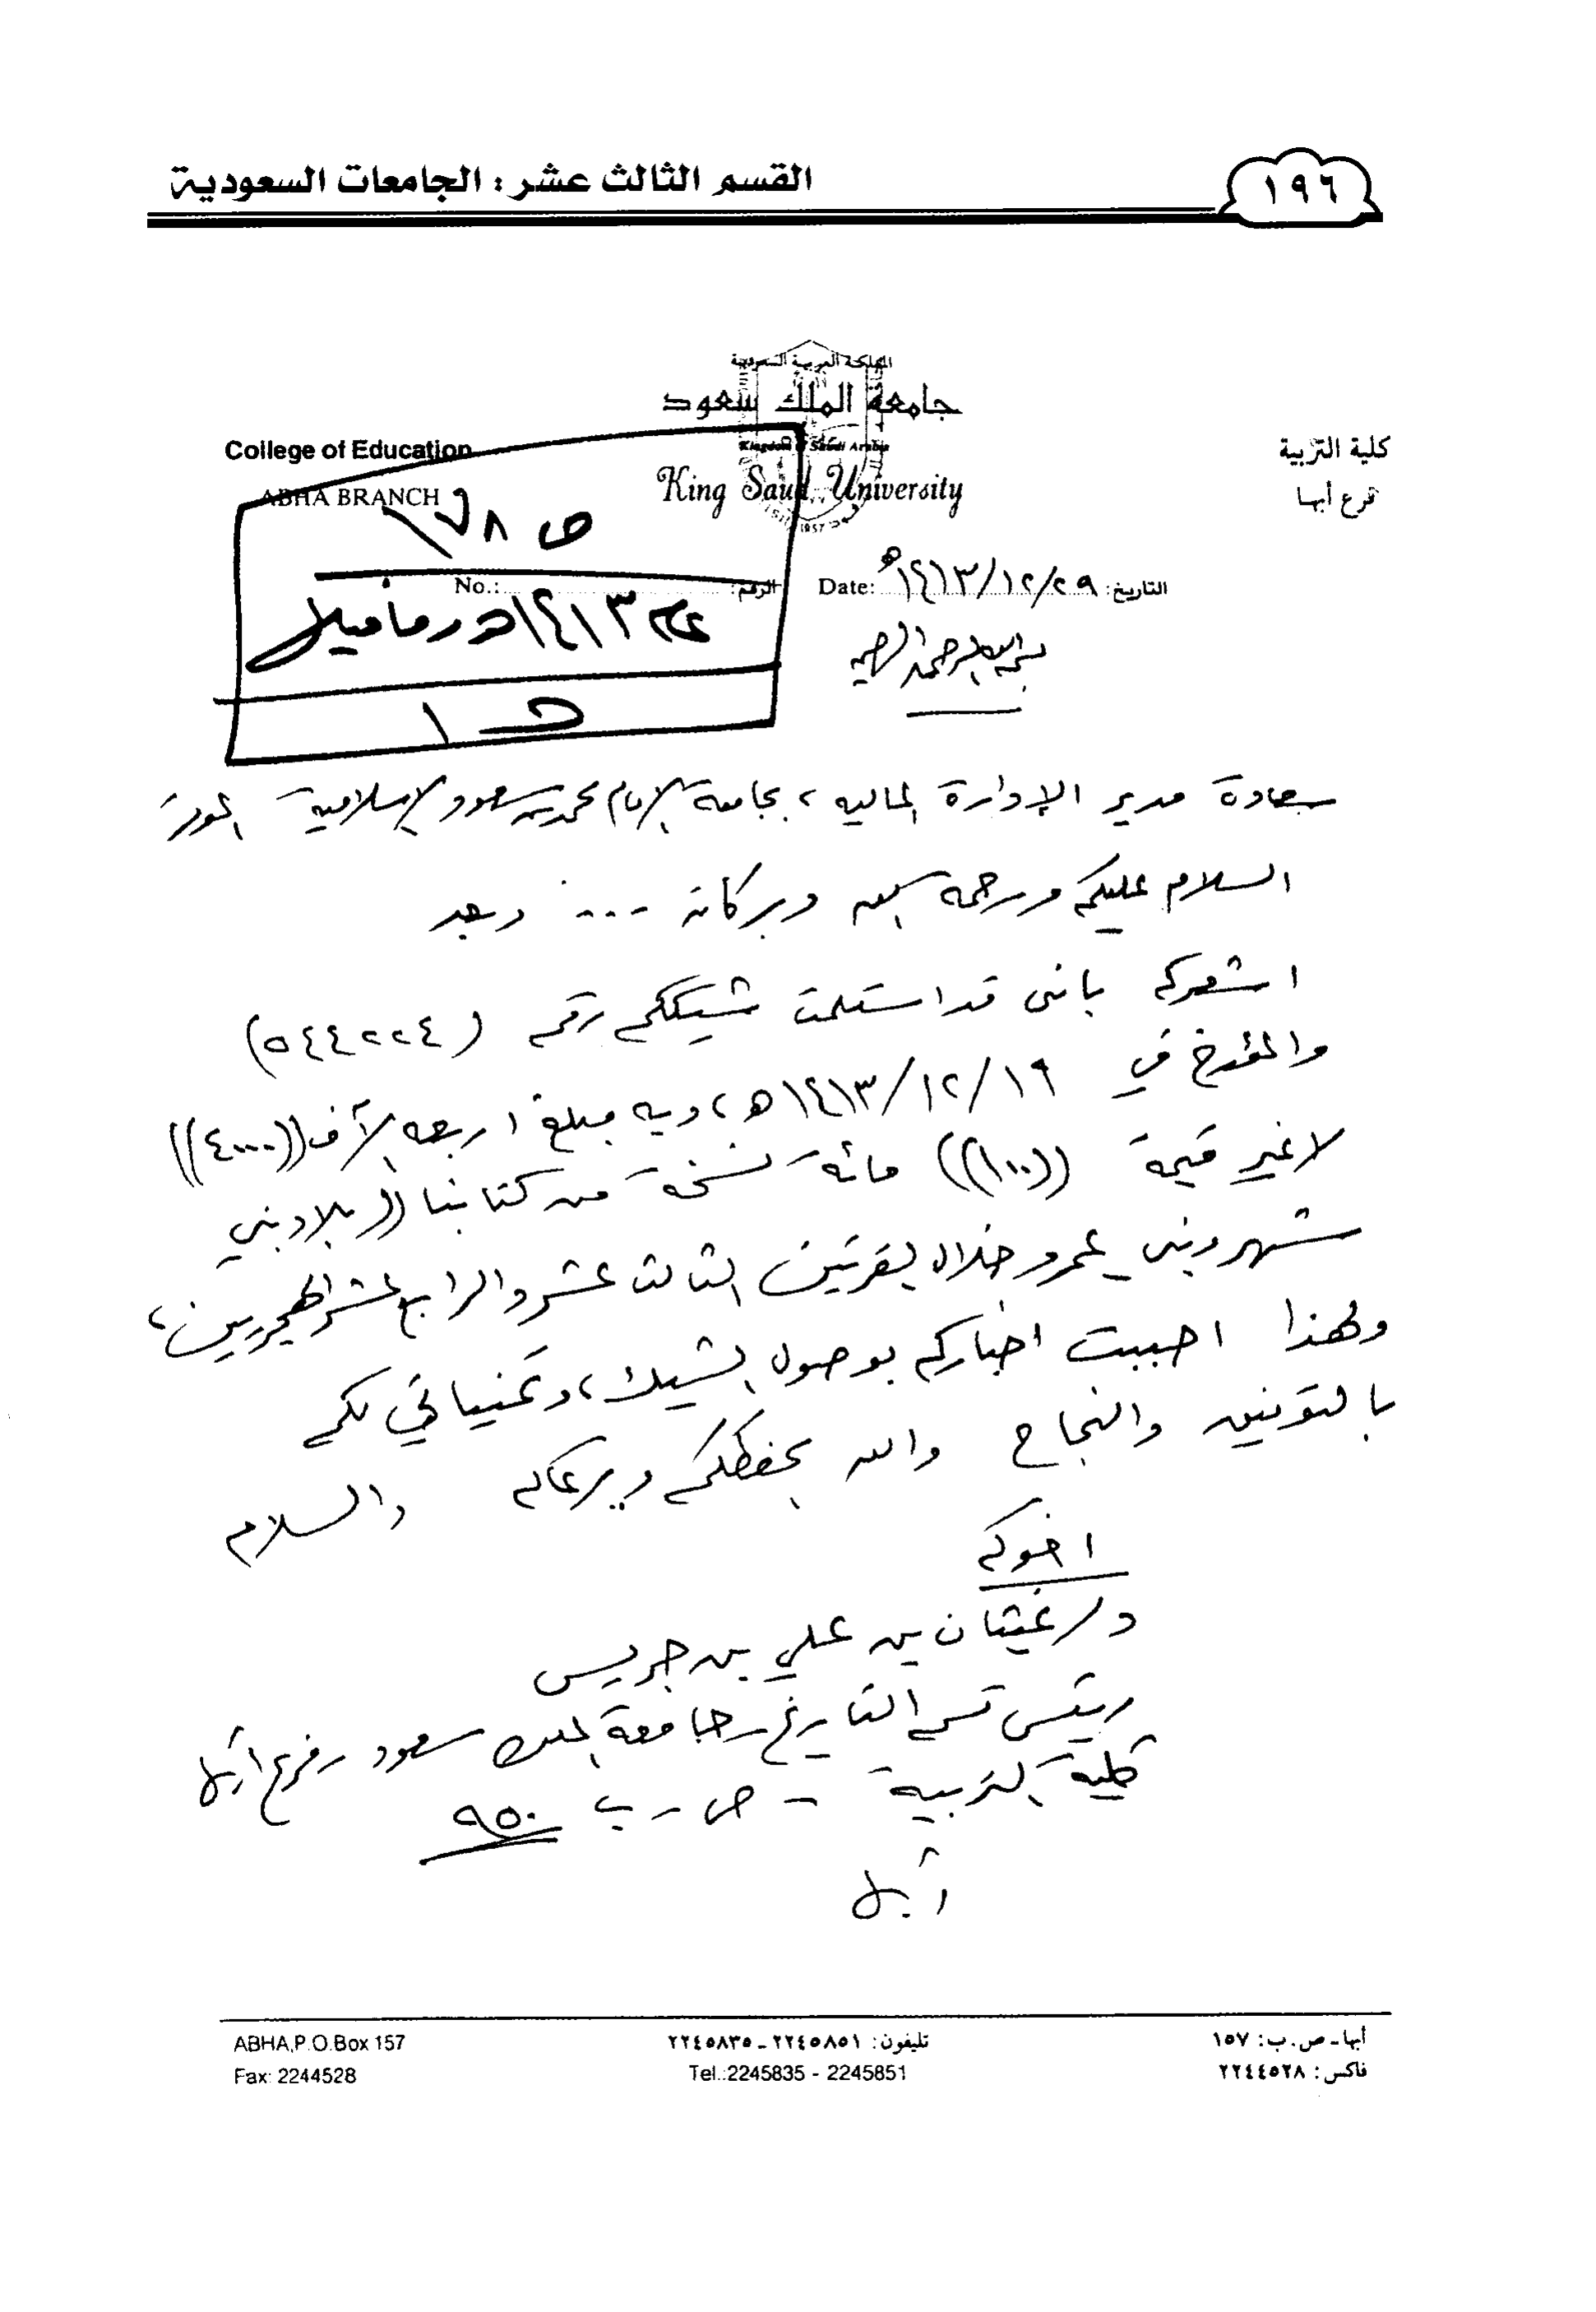 القسم الثالث عشر : الجامعات السعودية
١٩٦
المملكة العربية السعودية
جامعة الملك سعود
Kingdom of Saudi Arabia
King Saud University
1957
College of Education
ABHA BRANCH
كلية التربية
فرع أبها
ص ١٧٨
No.: الرقم:
عام ١٤١٣هـ وما قبل
ح ١
Date: ١٤١٣/١٢/٢٩هـ التاريخ:
بسم الله الرحمن الرحيم
سعادة مدير الإدارة المالية ، بجامعة الإمام محمد بن سعود الإسلامية الموقر
السلام عليكم ورحمة الله وبركاته ... وبعد
اشعركم بانني قد استلمت شيككم رقم (٥٤٤٢٢٤)
والمؤرخ في ١٤١٣/١٢/١٩هـ ، وبه مبلغ اربعه الآف ((٤٠٠٠))
لاغير قيمة ((١٠٠)) مائة نسخة من كتابنا ((بلاد بني
شهر وبني عمرو خلال القرنين الثالث عشر والرابع عشر الهجريين ،
ولهذا احببت اخباركم بوصول الشيك ، وتمنياتي لكم
بالتوفيق والنجاح والله يحفظكم ويرعاكم والسلام
اخوكم
د/ غيثان بن علي بن جريس
رئيس قسم التاريخ - جامعة الملك سعود - فرع أبها
كلية التربية - ص - ب ٩٥٠
أبها
ABHA,P.O.Box 157
Fax: 2244528
تليفون: ٢٢٤٥٨٥١ - ٢٢٤٥٨٣٥
Tel.:2245835 - 2245851
أبها - ص.ب: ١٥٧
فاكس: ٢٢٤٤٥٢٨